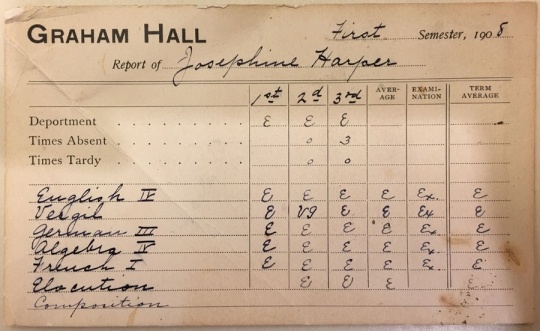 GRAHAM HALL First Semester, 1908
Report of Josephine Harper
1st 2d 3rd AVER-AGE EXAMI-NATION TERM AVERAGE
Deportment E E E
Times Absent 0 3
Times Tardy 0 0
English IV E E E E Ex. E
Vergil E VG E E Ex E
German III E E E E Ex. E
Algebra IV E E E E Ex. E
French I E E E E Ex. E
Elocution E E E E
Composition